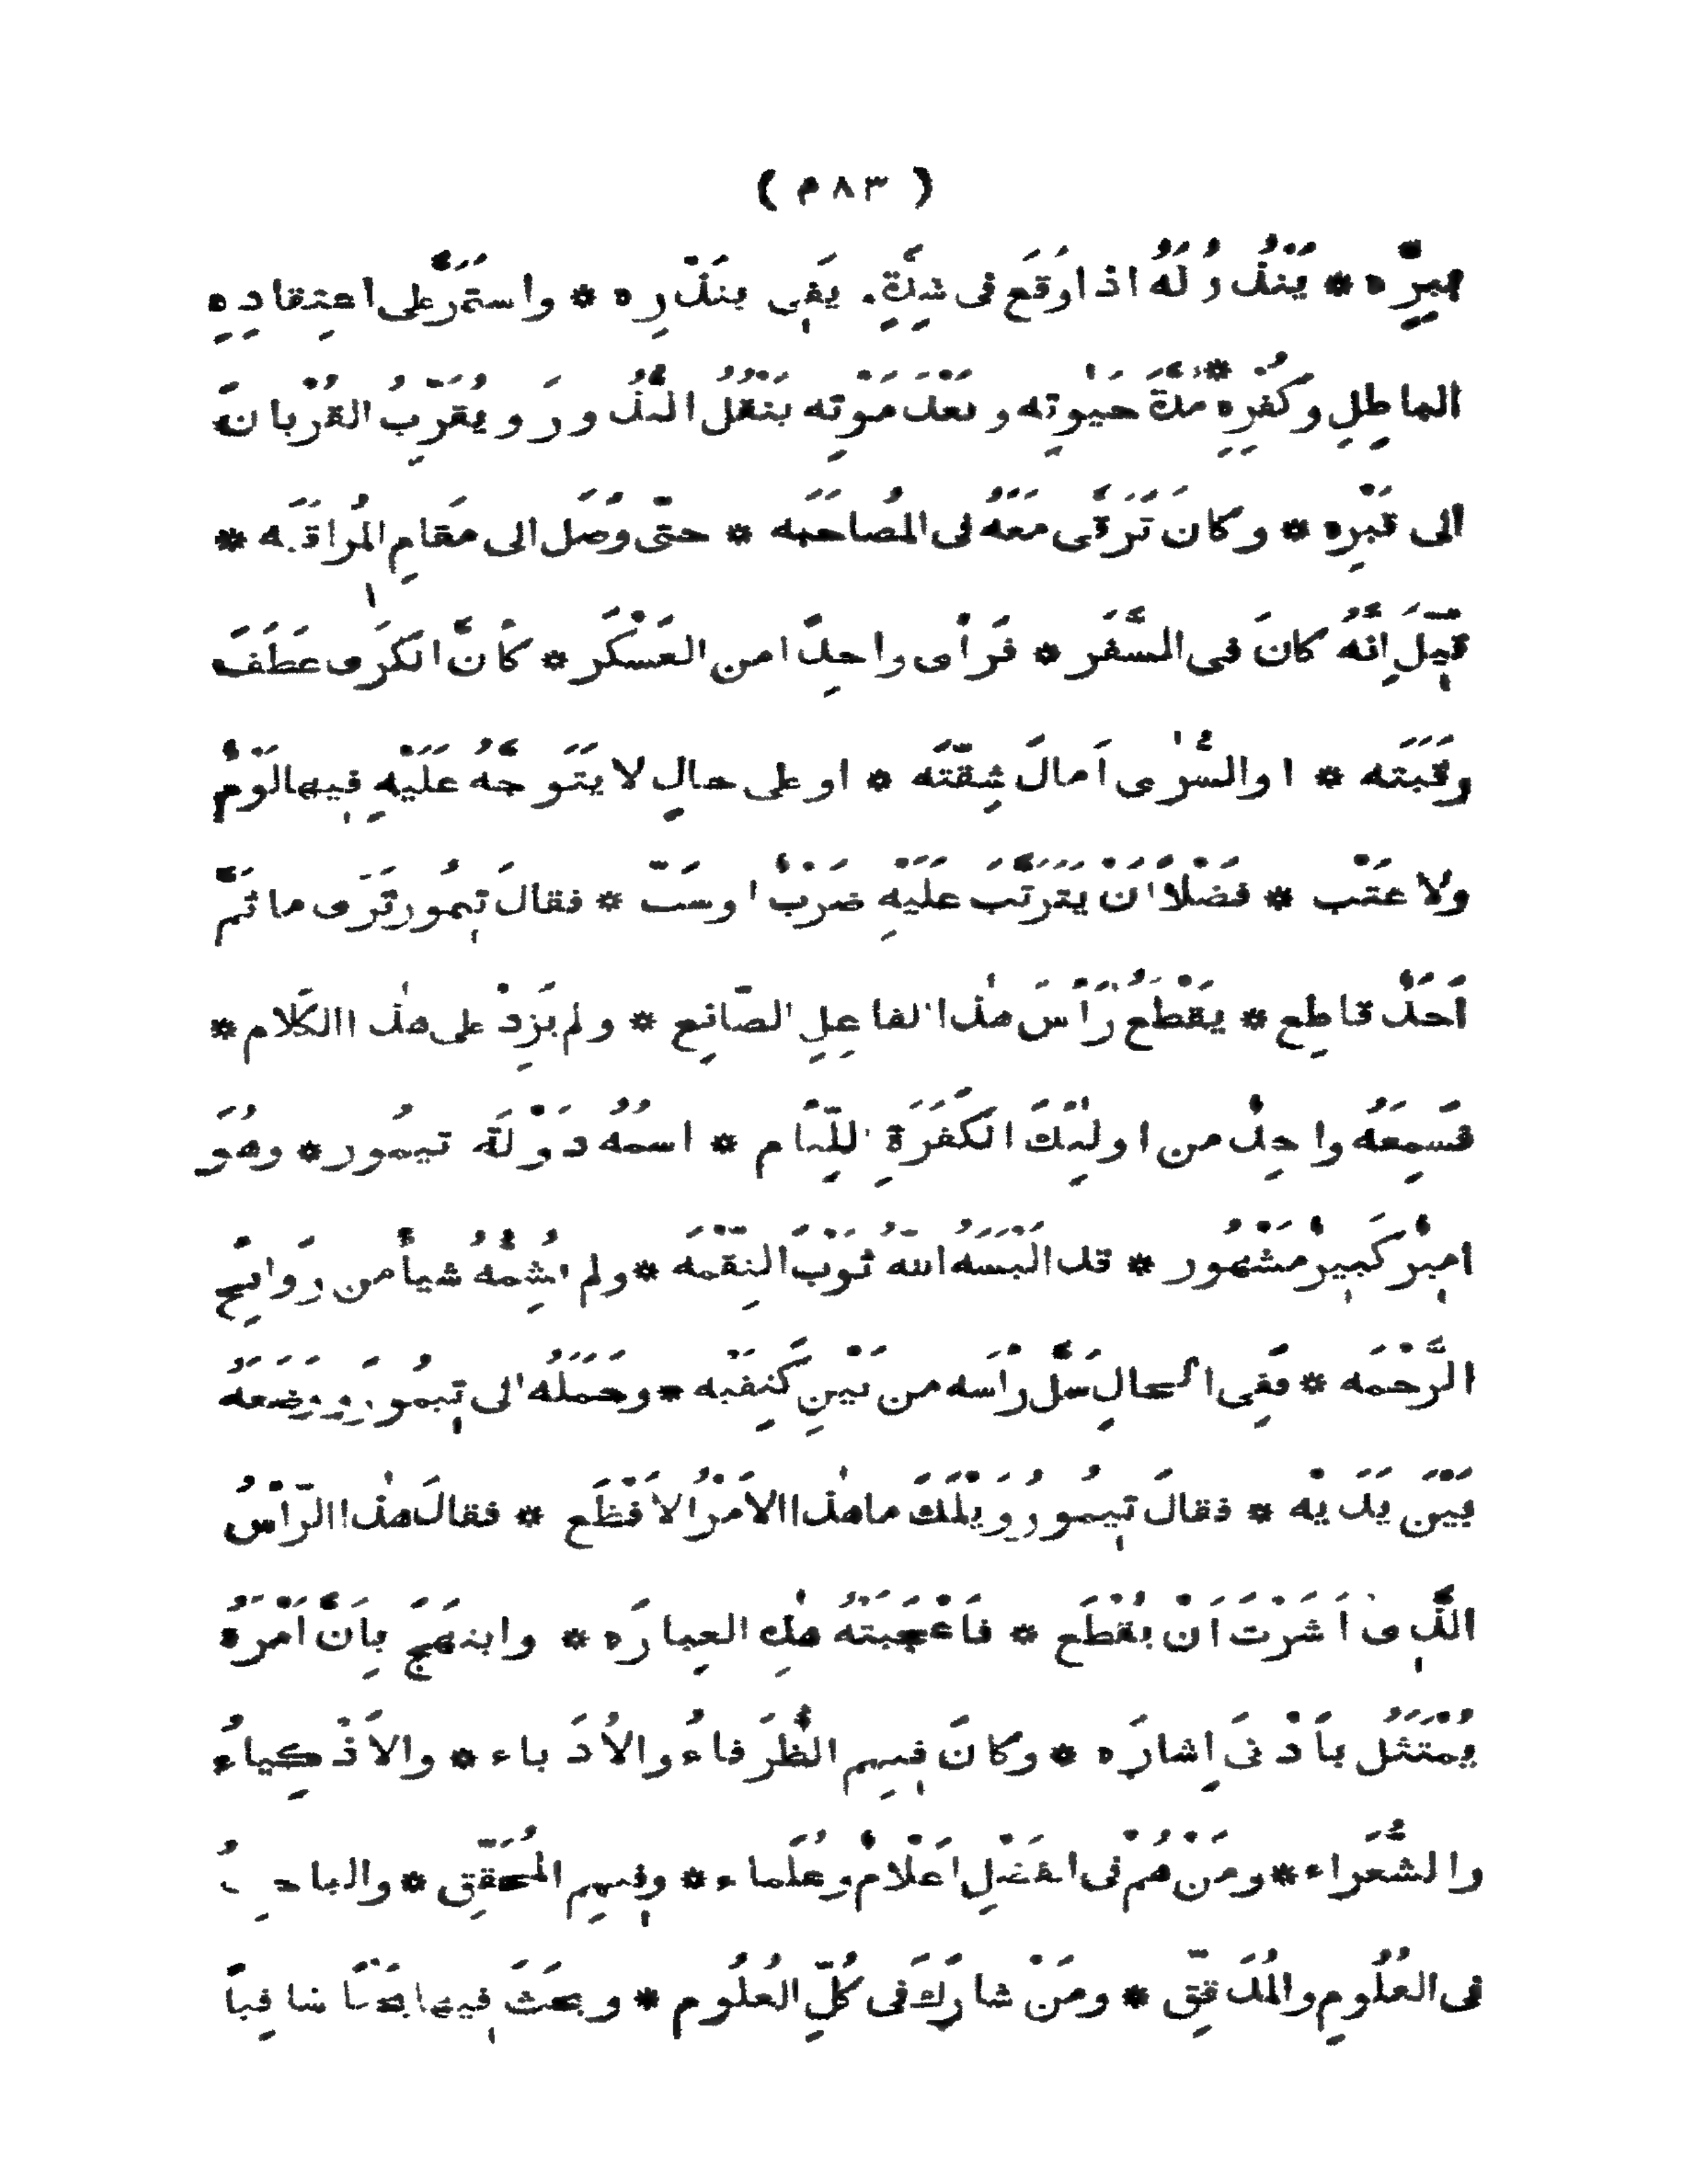 ( ٤٨٣ )
مبرّه * يَنْذُرُ لَهُ اذا وَقَع فى شِدَّةٍ. يَفِى بنَذْرِه * واستمَرَّ على اعتِقادِهِ
الباطِلِ وكُفْرِهِ * مُدَّةَ حَيٰوتِه وبَعْدَ مَوْتِه بنَقْلُ النُّذُورَ ويُقَرِّبُ القُرْبانَ
الى قَبْرِه * وكانَ تَرَقَّى مَعَهُ فى المُصاحَبَه * حتّى وُصَل الى مَقامِ المُراقَبَه *
قِيْلَ اِنَّهُ كانَ فى السَّفَر * فَرَأى واحِدًا من العَسْكَر * كَأنَّ الكَرَى عَطَفَ
رَقَبَتَه * او السُّرٰى اَمالَ شِقّتَه * او على حالٍ لا يتَوجَّهُ عَلَيْهِ فيها لَوْمٌ
ولا عَتْب * فَضْلاً اَنْ يَتَرَتَّبَ عَلَيْهِ ضَرْبٌ اوسَبّ * فقالَ تِيمُور تَرَى ما ثَمَّ
اَحَدٌ قاطِع * يَقْطَعُ رَأسَ هٰذا الفاعِلِ الصّانِع * ولم يَزِدْ على هٰذا الكَلام *
فَسمِعَهُ واحِدٌ من اولٰئِكَ الكَفَرَةِ اللِّئام * اسمُهُ دَوْلَة تيمُور * وهُوَ
امِيْرٌ كَبِيرٌ مَشْهُور * قد الْبَسَهُ اللّهُ ثَوْبَ النِقْمَه * ولم يُشِمَّهُ شيأً من رَوائِحِ
الرَّحْمَه * فَفِى الحالِ سَلَّ رأسَه من بَيْنِ كَتِفَيْه * وحَمَلَهُ الى تِيمُور ووضعَهُ
بَيْنَ يَدَيْه * فقالَ تِيمُور وَيْلَكَ ما هٰذا الاَمْرُ الاَفْظَع * فقالَ هٰذا الرّأسُ
الّذِى اَشَرْتَ اَنْ يُقْطَع * فَاَعْجَبَتْهُ هٰذِهِ العِبارَه * وابتهَجَ بِاَنَّ اَمْرَهُ
يُمْتَثَلُ بأَدْنَى اِشارَه * وكانَ فِيهِم الظُّرَفاءُ والاُدَباء * والاَذْكِياءُ
والشُّعَراء * ومَنْ هُمْ فى الفَضْلِ اَعْلامٌ وعُلَماء * وفِيهِم المُحَقّق * والباحِثُ
فى العُلُومِ والمُدَقِّق * ومَنْ شارَكَ فى كُلِّ العُلُوم * وبحَثَ فِيها بَحْثًا شافِياً